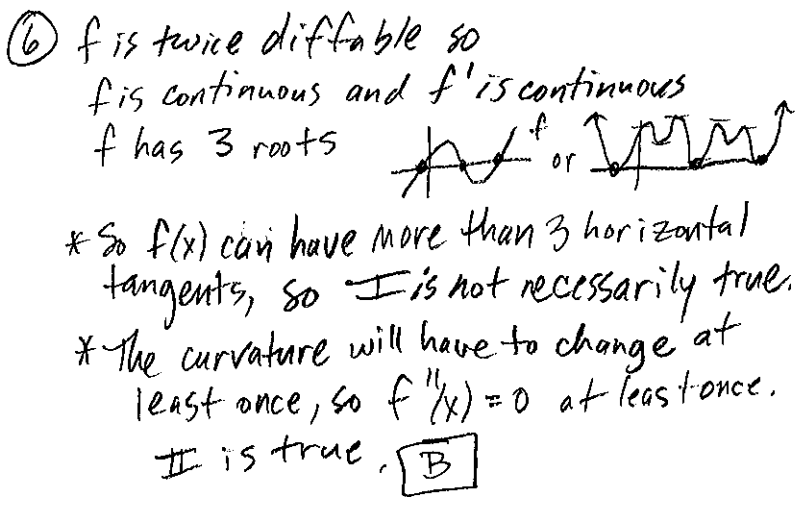 ⑥ f is twice diffable so
f is continuous and f' is continuous
f has 3 roots f or
* So f(x) can have more than 3 horizontal
tangents, so I is not necessarily true.
* The curvature will have to change at
least once, so f''(x) = 0 at least once.
II is true. B